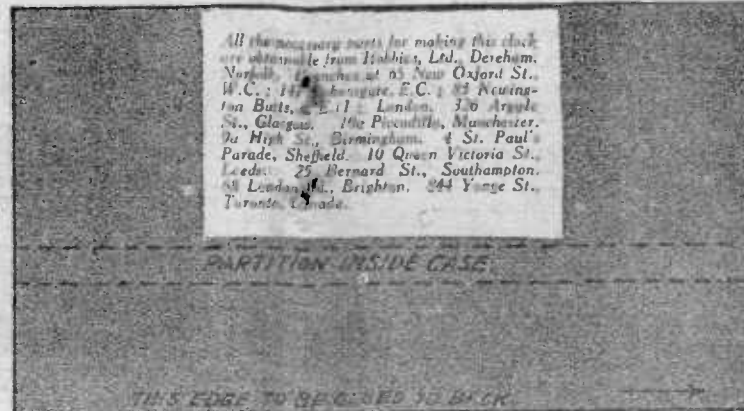 All the necessary parts for making this clock
are obtainable from Hobbies, Ltd., Dereham,
Norfolk. Branches at 65 New Oxford St.,
W.C.; E.C.; 83 Newing-
ton Butts, London. Argyle
St., Glasgow. Piccadilly, Manchester.
9a High St., Birmingham. 4 St. Paul's
Parade, Sheffield. 10 Queen Victoria St.,
Leeds. 25 Bernard St., Southampton.
London Brighton. 844 Yonge St.,
Toronto,
PARTITION INSIDE CASE
THIS EDGE TO BE GLUED TO BACK